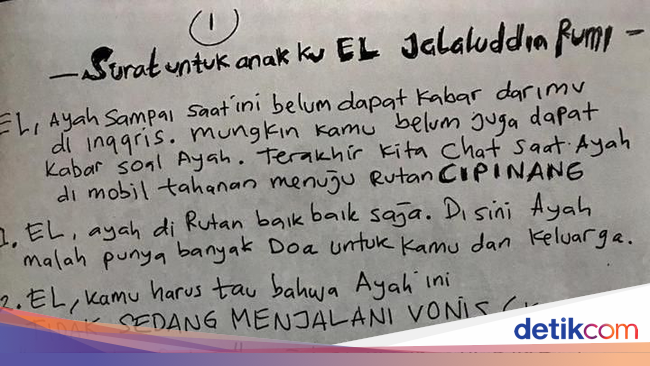 1
- Surat untuk anak ku EL Jalaluddin Rumi -
EL, Ayah sampai saat ini belum dapat kabar darimu
di inggris. mungkin kamu belum juga dapat
kabar soal Ayah. Terakhir kita Chat saat Ayah
di mobil tahanan menuju Rutan CIPINANG
1. EL, ayah di Rutan baik baik saja. Disini Ayah
malah punya banyak Doa untuk kamu dan keluarga.
2. EL, kamu harus tau bahwa Ayah ini
TIDAK SEDANG MENJALANI VONIS
detikcom